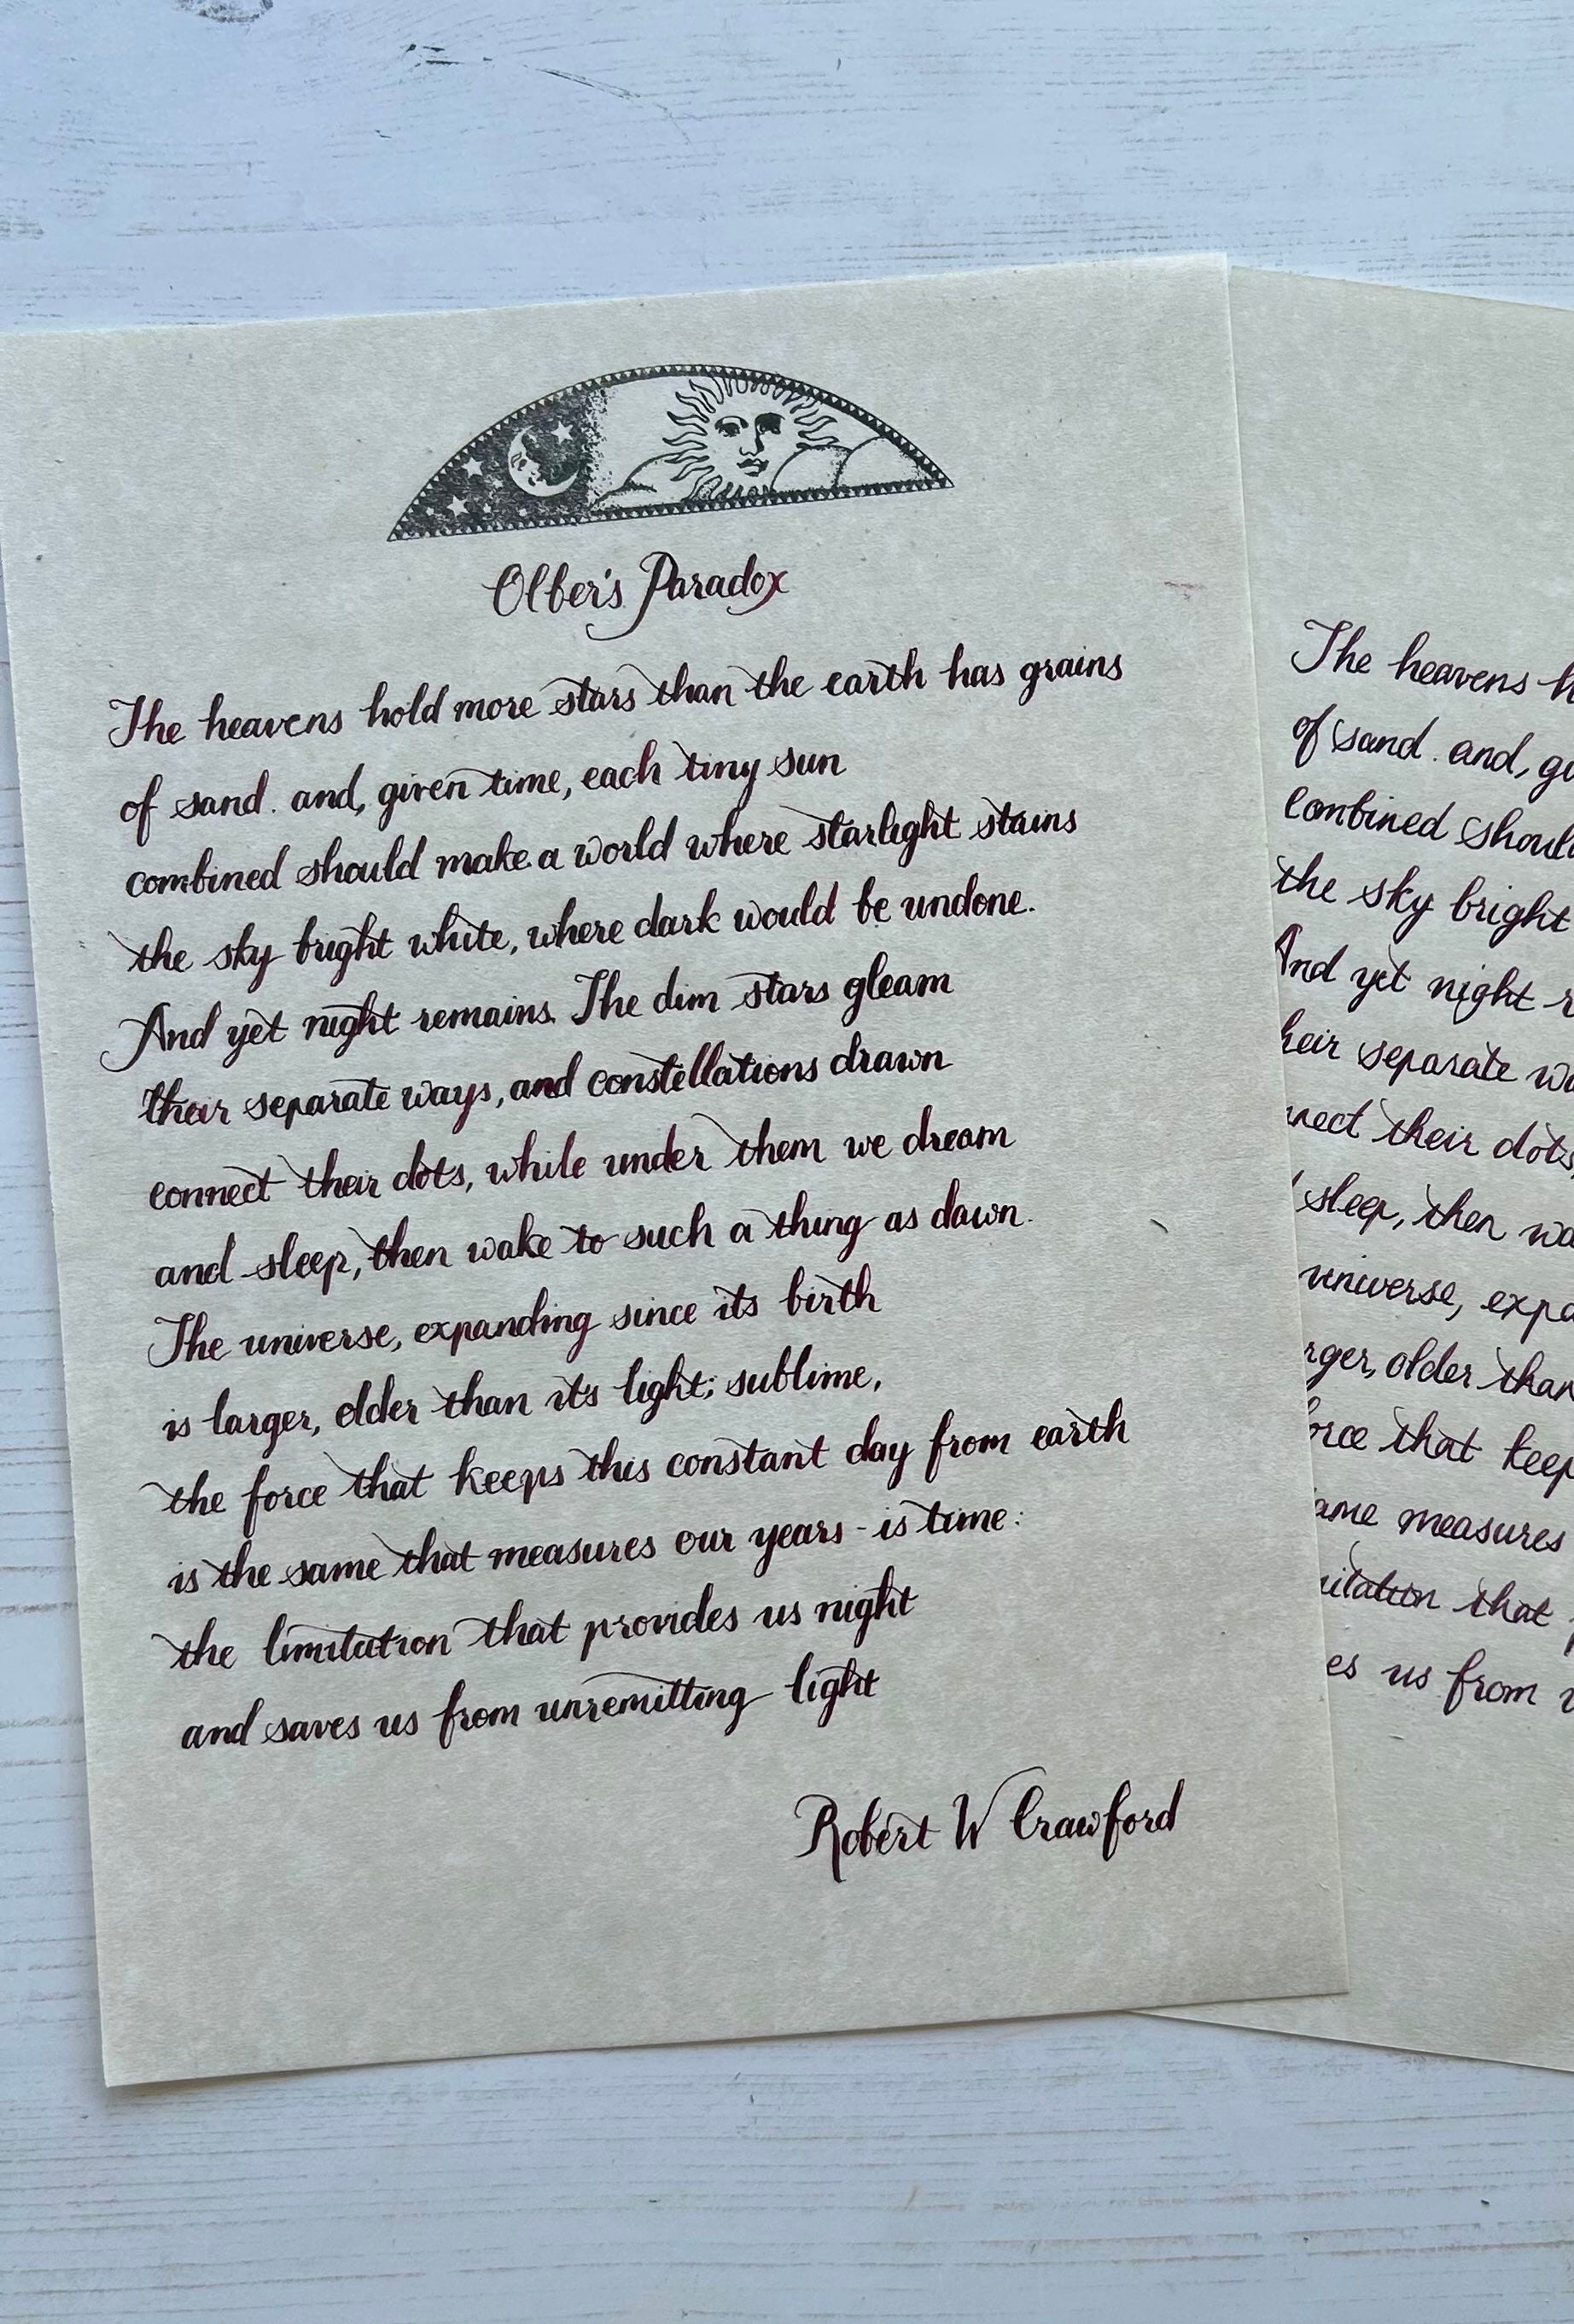 Olber's Paradox
The heavens hold more stars than the earth has grains
of sand. and, given time, each tiny sun
combined should make a world where starlight stains
the sky bright white, where dark would be undone.
And yet night remains. The dim stars gleam
their separate ways, and constellations drawn
connect their dots, while under them we dream
and sleep, then wake to such a thing as dawn.
The universe, expanding since its birth
is larger, older than its light; sublime,
the force that keeps this constant day from earth
is the same that measures our years - is time:
the limitation that provides us night
and saves us from unremitting light
Robert W Crawford
The heavens
of sand. and,
combined
the sky bright
And yet night
separate
their dots,
sleep, then
universe,
older
that
measures
that
us from